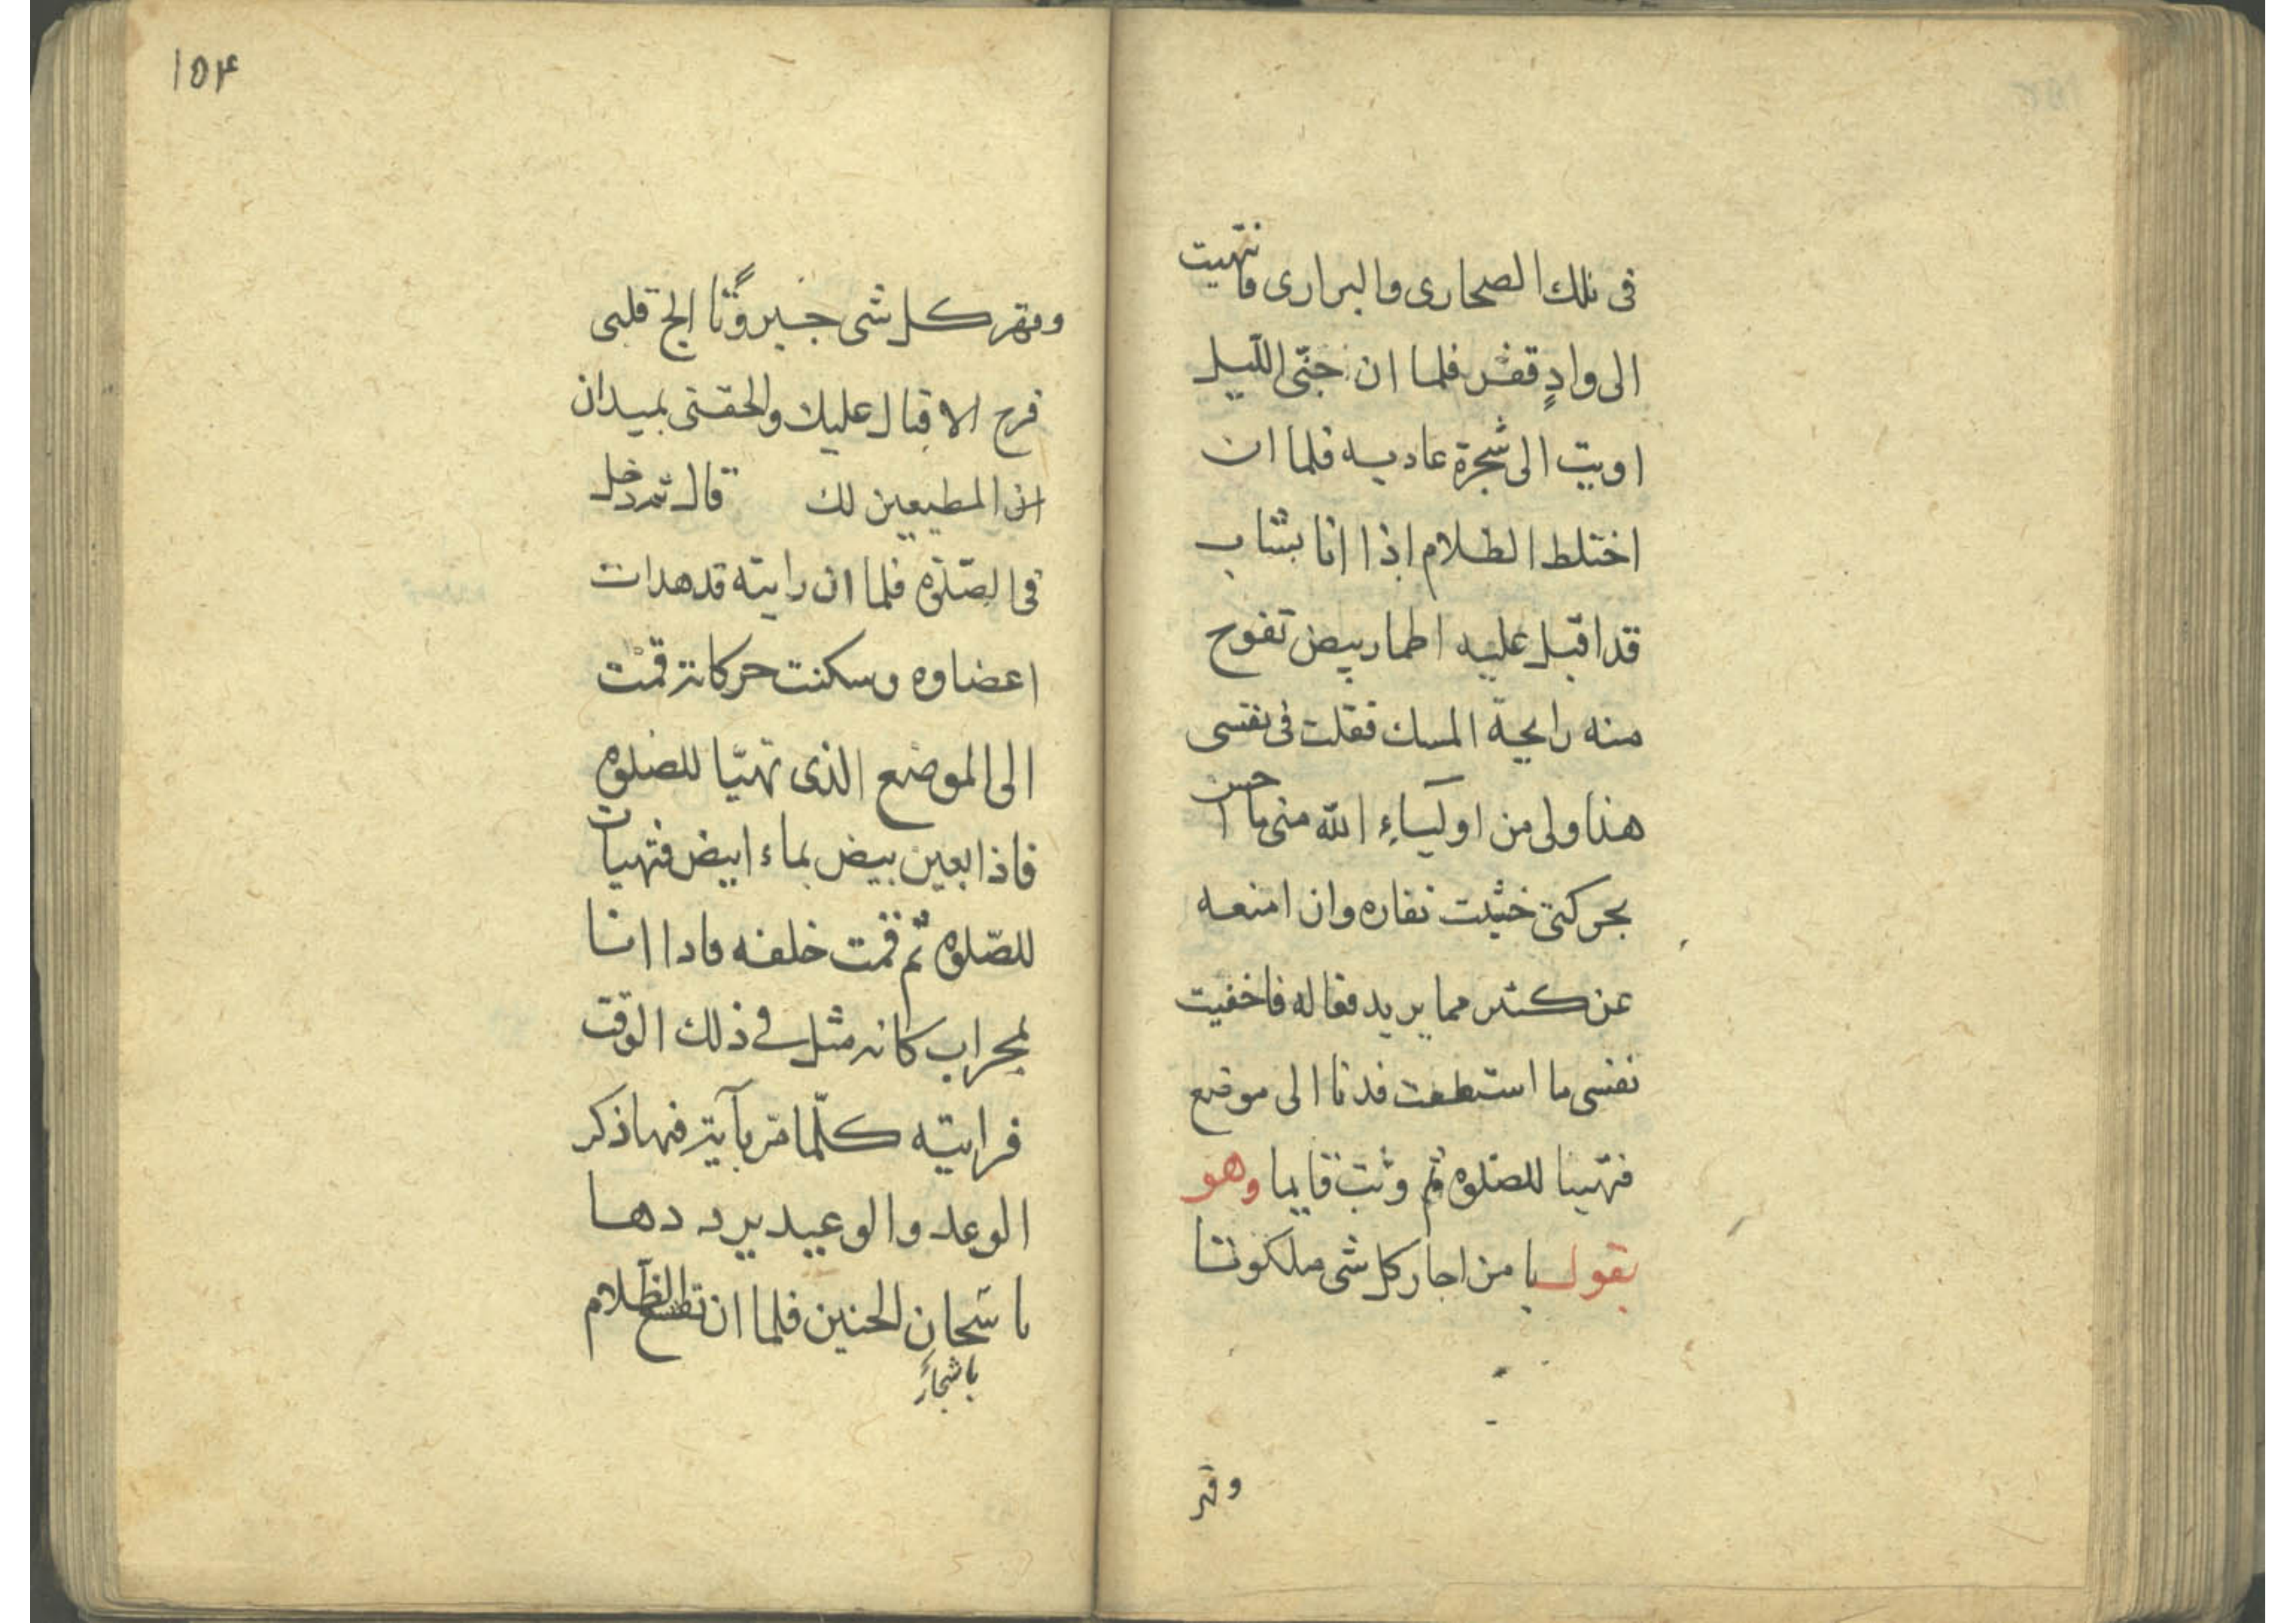 فى تلك الصحارى والبرارى وانتهيت
الى وادٍ قفر فلما ان جنّى اللّيل
اويت الى شجرة عاديه فلما ان
اختلط الظلام اذا انا بشاب
قد اقبل عليه اطمار بيض تفوح
منه رايحة المسك فقلت فى نفسى
هذا ولى من اولياءِ الله متى ما احسن
بحركتى خشيت نفاره وان امنعه
عن كثير مما يريد فعاله فاخفيت
نفسى ما استطعت فدنا الى موضع
فتهيا للصّلوه ثم وثب قايما وهو
يقول يا من احار كل شى ملكوتا
وقهر
١٥۴
وقهر كل شى جبروتًا الج قلبى
فرح الاقبال عليك والحقنى بميدان
المطيعين لك قال ثم دخل
فى الصّلوه فلما ان رايته قد هدات
اعضاوه وسكنت حركاته قمت
الى الموضع الذى تهيّا للصلوه
فاذا بعين بيض بماء ابيض فتهيات
للصّلوه ثم قمت خلفه فاذا انا
بمحراب كانه مثل فى ذلك الوقت
فرايته كلّما مّر بآية فيها ذكر
الوعد والوعيد يرددها
باشجان الحنين فلما ان تقشع الظّلام
باشجان